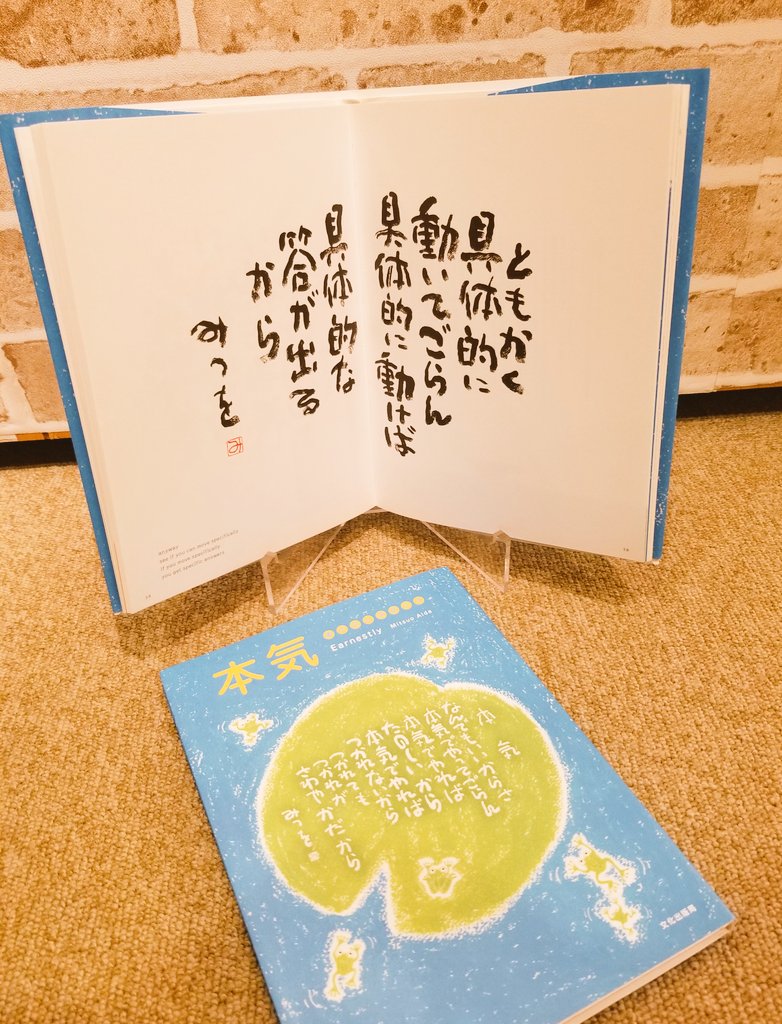 ともかく
具体的に
動いてごらん
具体的に動けば
具体的な
答が出る
から
みつを
み
anyway
see if you can move specifically
if you move specifically
you get specific answers
本気
Earnestly Mitsuo Aida
本気
なんでもいいからさ
本気でやってごらん
本気でやれば
たのしいから
本気でやれば
つかれないから
つかれても
つかれが
さわやかだから
みつを
文化出版局